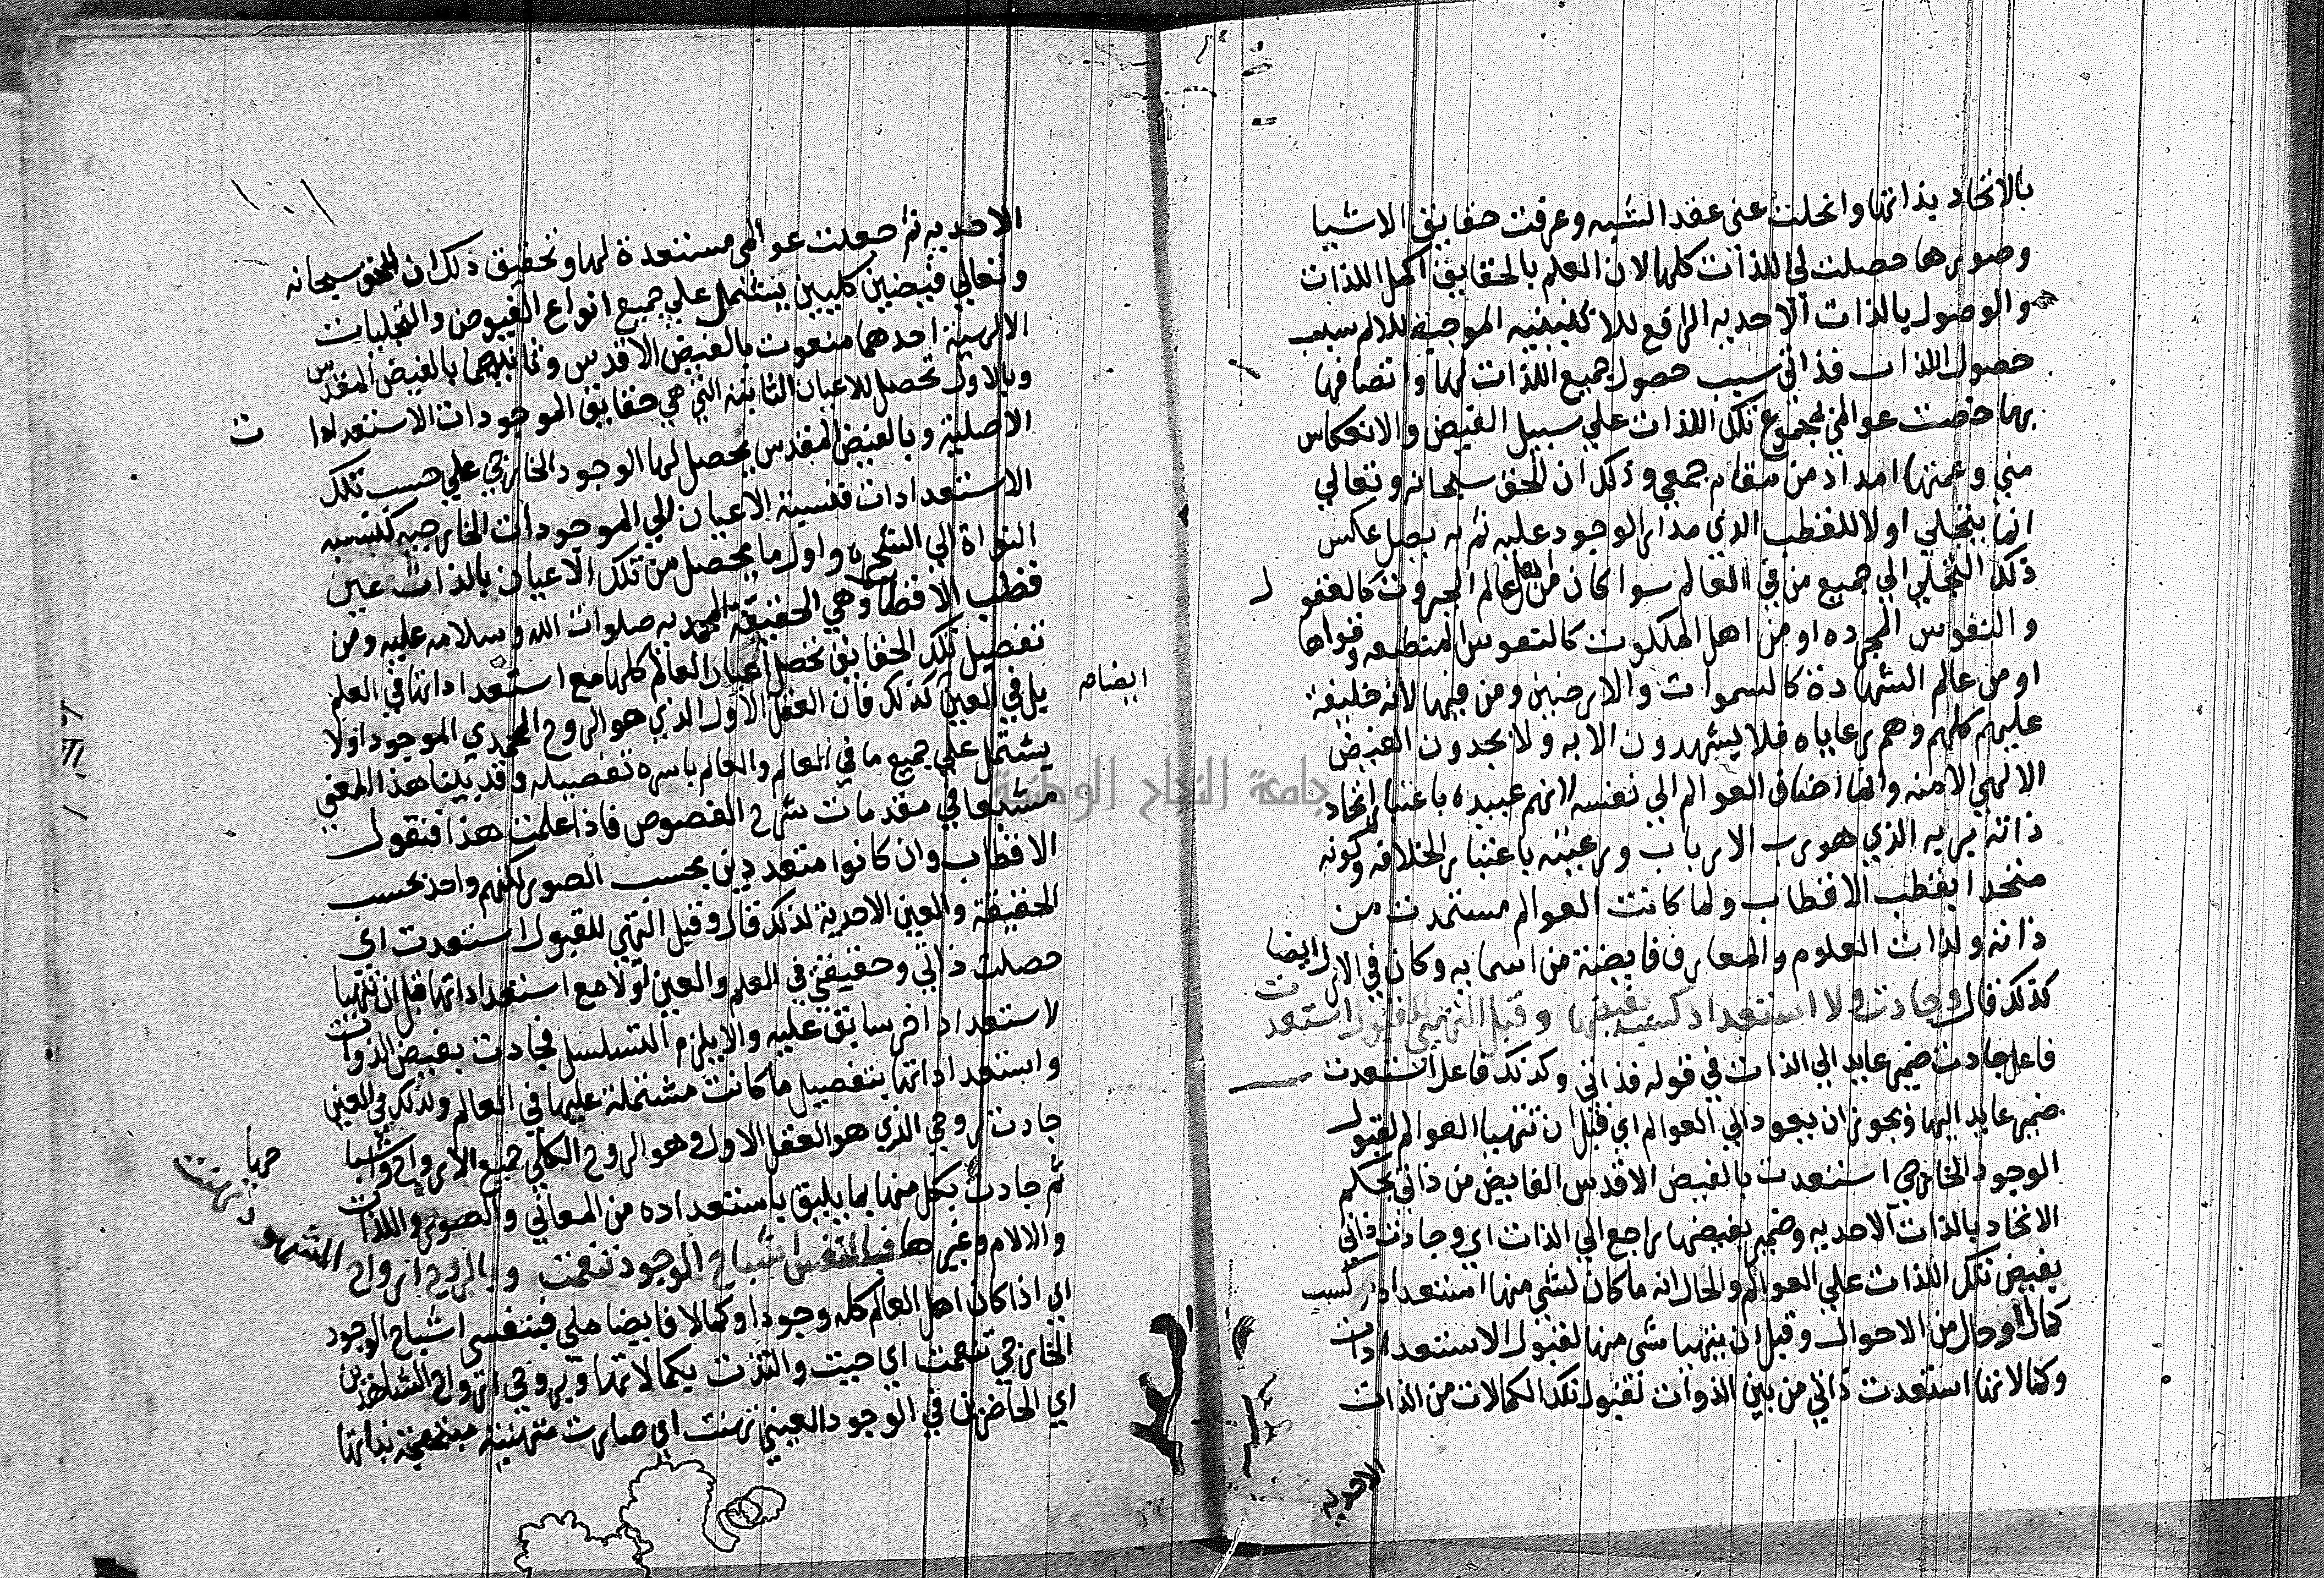 بالاتحاد بذاتها وانحلت عني عقد الشبه وعرفت حقايق الاشيا
وصورها حصلت لي اللذات كلها لان العلم بالحقايق اكمل اللذات
والوصول بالذات الاحديه الرافع للاثنينيه الموجبة للالم سبب
حصول اللذات فذاتي سبب حصول جميع اللذات لها واتصافها
بها خصت عوالمي بمجموع تلك اللذات علي سبيل الفيض والانعكاس
مني وعمتها امداد من مقام جمعي وذلك ان الحق سبحانه وتعالي
انما يتجلي اولا للقطب الذي مدار الوجود عليه ثم به يصل عكس
ذلك التجلي الي جميع من في العالم سوا كان من اهل عالم الجبروت كالعقول
والنفوس المجرده او من اهل الملكوت كالنفوس المنطبعه وقواها
او من عالم الشهادة كالسموات والارضين ومن فيها لانه خليفة
عليهم كلهم وهم رعاياه فلا يشهدون الا به ولا يجدون الفيض
الالهي الا منه وانما اضاف العوالم الي نفسه لانهم عبيده باعتبار اتحاد
ذاته بربه الذي هو رب الارباب ورعيته باعتبار الخلافه وكونه
متحدا بقطب الاقطاب ولما كانت العوالم مستمدت من
ذاته ولذات العلوم والمعارف فايضة من اسمايه وكان في الازل ايضا
كذلك قال وجادت ولا استعداد كسب بفيضها وقبل التهيئ للقبول استعدت
فاعل جادت ضمير عايد الي الذات في قوله فذاتي وكذلك فاعل استعدت
ضمير عايد اليها ويجوز ان يعود الي العوالم اي قبل ان تتهيا العوالم لقبول
الوجود الخارجي استعدت بالفيض الاقدس الفايض من ذاتي بحكم
الاتحاد بالذات الاحديه وضمير بفيضها راجع الي الذات اي وجادت ذاتي
بفيض تلك اللذات علي العوالم والحال انه ما كان لشي منها استعداد كسب
كمال او حال من الاحوال وقبل ان يتهيا شي منها لقبول الاستعدادات
وكمالاتها استعدت ذاتي من بين الذوات لقبول تلك الكمالات من الذات
الاحديه
الاحديه ثم جعلت عوالمي مستعدة لها وتحقيق ذلك ان للحق سبحانه
وتعالي فيضين كليين يشتمل علي جميع انواع الفيوض والتجليات
الالهية احدهما منعوت بالفيض الاقدس وثانيهما بالفيض المقدس
وبالاول تحصل للاعيان الثابتة التي هي حقايق الموجودات الاستعدادات
الاصلية وبالفيض المقدس يحصل لها الوجود الخارجي علي حسب تلك
الاستعدادات فنسبة الاعيان الي الموجودات الخارجيه كنسبة
النواة الي الشجره واول ما يحصل من تلك الاعيان بالذات عين
قطب الاقطاب وهي الحقيقة المحمديه صلوات الله وسلامه عليه ومن
تفصيل تلك الحقايق تحصل اعيان العالم كلها مع استعداداتها في العلم
بل في العين كذلك فان العقل الاول الذي هو الروح المحمدي الموجود اولا
ايضا
يشتمل علي جميع ما في العالم والعالم باسره تفصيله وقد بينا هذا المعني
مشبعا في مقدمات شرح الفصوص فاذا علمت هذا فنقول
الاقطاب وان كانوا متعددين بحسب الصور لكنهم واحد بحسب
الحقيقة والعين الاحدية لذلك قال وقبل التهي للقبول استعدت اي
حصلت ذاتي وحقيقتي في العلم والعين اولا مع استعداداتها قبل ان تتهيا
لاستعداد اخر سابق عليه والا يلزم التسلسل فجادت بفيض الذوات
واستعداداتها بتفصيل ما كانت مشتملة عليها في العالم وكذلك في العين
جادت روحي الذي هو العقل الاول وهو الروح الكلي جميع الارواح والاشيا
ثم جادت بكل منها بما يليق باستعداده من المعاني والصور واللذات
والالام وغيرها فبالنفس اشباح الوجود تنعمت وبالروح ارواح
الشهود تهنت
اي اذا كان اهل العالم كله وجودا وكمالا فايضا مني فبنفسي اشباح الوجود
الخارجي تنعمت اي حييت والتذت بكمالاتها وبروحي ارواح الشاهدين
اي الحاضرين في الوجود العيني تهنت اي صارت متهنيه مبتهجة بذاتها
جامعة النجاح الوطنية